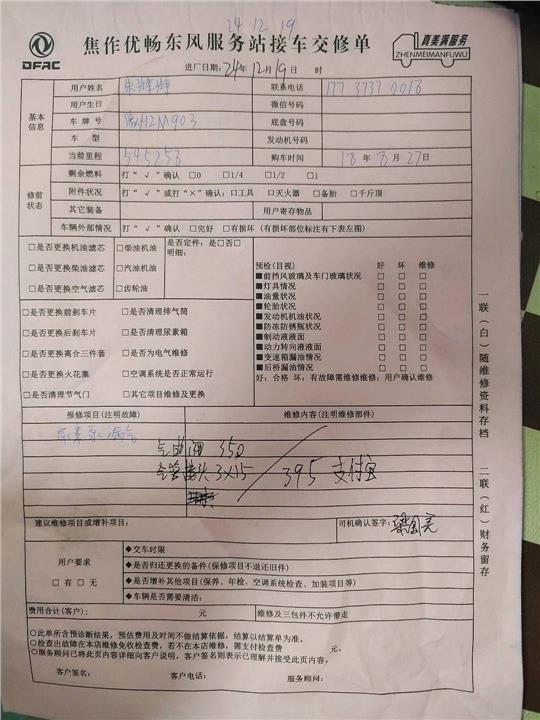 24 12 19
DFAC
焦作优畅东风服务站接车交修单
真美满服务
ZHENMEIMANFUWU
进厂日期：24年12月19日 时
基本信息
用户姓名
联系电话
用户生日
微信号码
车牌号
底盘号码
车型
发动机号码
当前里程 545256
购车时间 18年8月27日
修前状态
剩余燃料 打“√”确认 □0 □1/4 □1/2 □1
附件状况 打“√”或打“×”确认：□工具 □灭火器 □备胎 □千斤顶
其它装备
用户寄存物品
车辆外部情况 打“√”确认 □完好 □有损坏（有损坏部位标注有下表左图）
□是否更换机油滤芯 □柴油机油
□是否更换柴油滤芯 □汽油机油
□是否更换空气滤芯 □齿轮油
是否定件：是□否□
明细：
□是否更换前刹车片 □是否清理排气筒
□是否更换后刹车片 □是否清理尿素箱
□是否更换离合三件套 □是否为电气维修
□是否更换火花塞 □空调系统是否正常运行
□是否清理节气门 □其它项目维修及更换
预检(目视) 好 坏 维修
■前挡风玻璃及车门玻璃状况 □ □ □
■灯具情况 □ □ □
■油量状况 □ □ □
■轮胎状况 □ □ □
■发动机机油状况 □ □ □
■防冻防锈瓶状况 □ □ □
■制动液液面 □ □ □
■动力转向液液面 □ □ □
■变速箱漏油情况 □ □ □
■后桥漏油情况 □ □ □
好：合格 坏：有故障需维修维修：用户确认维修
报修项目(注明故障)
维修内容(注明维修部件)
尿素泵漏气
350
接头3×15
395 支付宝
建议维修项目或增补项目：
司机确认签字：
用户要求
□有 □无
◆交车时限
◆是否归还更换的备件(保修项目不退还旧件)
◆是否增补其他项目(保养、年检、空调系统检查、加装项目等)
◆车辆是否需要清洁：
费用合计(客户)： 元
维修及三包件不允许带走
○此单所含预诊断结果，预估费用及时间不做结算依据，结算以结算单为准。
○检查出故障在本店维修免收检查费，若不在本店维修，需支付检查费 元，
○服务顾问已将此页内容详细向客户说明，客户签名则表示已理解并接受此页内容，
客户签名： 客户电话： 服务顾问：
一联（白）随维修资料存档
二联（红）财务留存